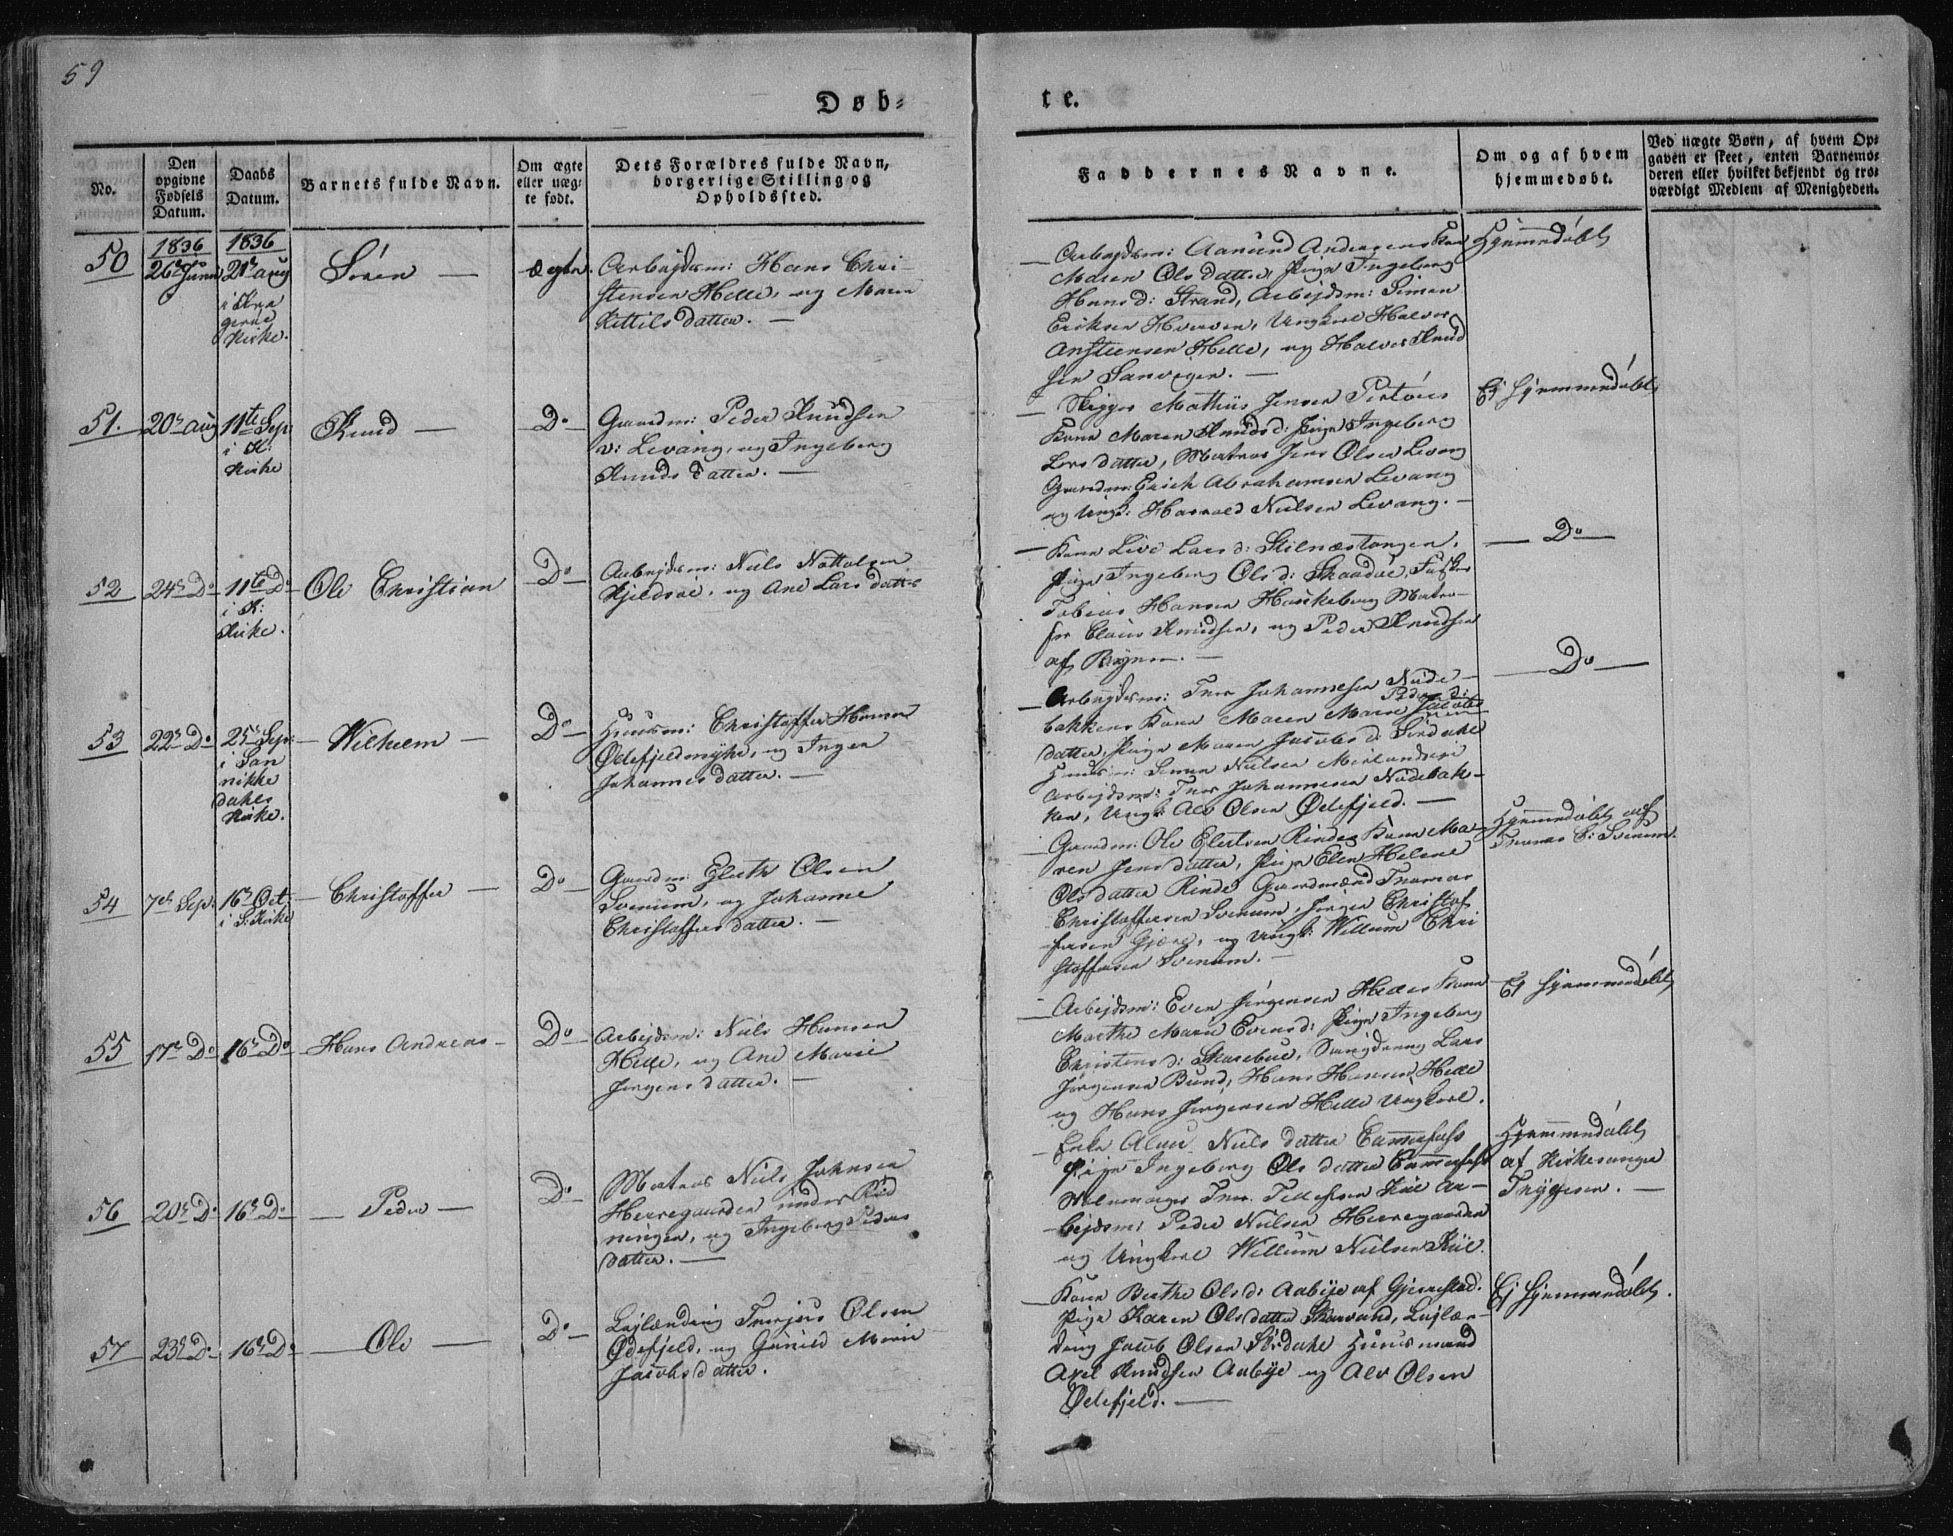 59
Døb-
te.
No.
Den
opgivne
Fødsels
Datum.
Daabs
Datum.
Barnets fulde Navn.
Om ægte
eller uæg-
te født.
Dets Forældres fulde Navn,
borgerlige Stilling og
Opholdssted.
Faddernes Navne.
Om og af hvem
hjemmedøbt.
Ved uægte Børn, af hvem Op-
gaven er skeet, enten Barnemo-
deren eller hvilket bekjendt og tro-
værdigt Medlem af Menigheden.
50
1836
26de Juni
1836
21de Aug
i Kra
gerøe
Kirke.
Søren —
Ægte.
Arbejdsm: Hans Chri-
stensen Helle, og Maren
Kittilsdatter. —
— Arbejdsm: Aanund Andersens Kone
Maren Olsdatter, Pige Ingeborg
Hansd: Strand, Arbejdsm: Simon
Eriksen, Ungkarl Halvor
Anstensen Helle, og Halvor Knud
sen Sanvigen. —
Hjemmedøbt
51.
20de Aug
11te Sep:
i K:
Kirke
Knud —
Do —
Gaardm: Peder Knudsen
v: Levang, og Ingeborg
Knudsdatter. —
— Skipper Mathiis Jensen
Kone Maren Knudsd: Pige Ingeborg
Larsdatter, Matros Jens Olsen Levang
Gaardm: Erich Abrahamsen Levang
og Ungk: Harvald Nielsen Levang. —
Ej hjemmedøbt
52
24de Do
11te Do
i K:
Kirke.
Ole Christian
Do —
Arbejdsm: Niels Nottolsen
Kjeldsøe, og Ane Larsdatter
— Kone Live Larsd: Stilnæstangen,
Pige Ingeborg Olsd: Skaadøe, Fisker
Tobias Hansen Matro-
ser Claus Knudsen, og Peder Knudsen
af Byen. —
— Do —
53
22de Do
25de Sep:
i San
nikke
dahls
Kirke.
— Wilhelm —
Do —
Huusm: Christoffer Hansen
Ødefjeldmyhr, og Inger
Johannesdatter. —
— Arbejdsm: Thor Johannesen Nude-
bakkens Kone Maren Marie Jacobs
Peders d:
datter, Pige Maren Jacobsd: Sørdahl
Huusm: Simon Nielsen
Arbejdsm: Thor Johannesen Nudebak-
ken, Ungk: Alv Olsen Ødefjeld. —
— Do —
54
7de Sep:
16de Oct.
i S: Kirke
— Christoffer —
Do —
Gaardm: Eleth Olsen
Svenum, og Johanne
Christoffersdatter. —
— Gaardm: Ole Eletsen Rindes Kone Ma-
ren Jensdatter, Pige Elen Helene
Olsdatter Rinde, Gaardmænd Thomas
Christoffersen Svenum, Jørgen Christof
fersen Gjære, og Ungk: Willum Chri
stoffersen Svenum. —
Hjemmedøbt af
Thomas C: Svenum.
55
17de Do
16de Do
— Hans Andreas —
Do —
Arbejdsm: Niels Hansen
Helle, og Ane Marie
Jørgensdatter. —
— Arbejdsm: Even Jørgensen Helles Kone
Marthe Marie Evensd: Pige Ingeborg
Christensd: Skarebue, Lars
Jørgensen Bund, Hans Hansen Helle
og Hans Jørgensen Helle Ungkarl.
Ej hjemmedøbt
56
20de Do
16de Do
— Peder —
Do —
Matros Niels Johnsen
Herregaarden under Rød
ningen, og Ingeborg Peders
datter. —
— Enke Niels datter
Pige Ingeborg Olsdatter
Thor Tellefsen Kiil Ar-
bejdsm: Peder Nielsen Herregaarden
og Ungkarl Willum Nielsen Kiil.
Hjemmedøbt
af Kirkesanger
Thygesen. —
57
23de Do
16de Do
— Ole —
Do —
Lejlænding Thorjus Olsen
Ødefjeld, og Gunild Marie
Jacobsdatter.
— Kone Berthe Olsd: Aabye af Gjerrestad.
Pige Karen Olsdatter, Lejlæn-
ding Jacob Olsen Sørdahl, Huusmænd
Axel Knudsen Aabye og Alv Olsen
Ødefjeld. —
Ej hjemmedøbt.